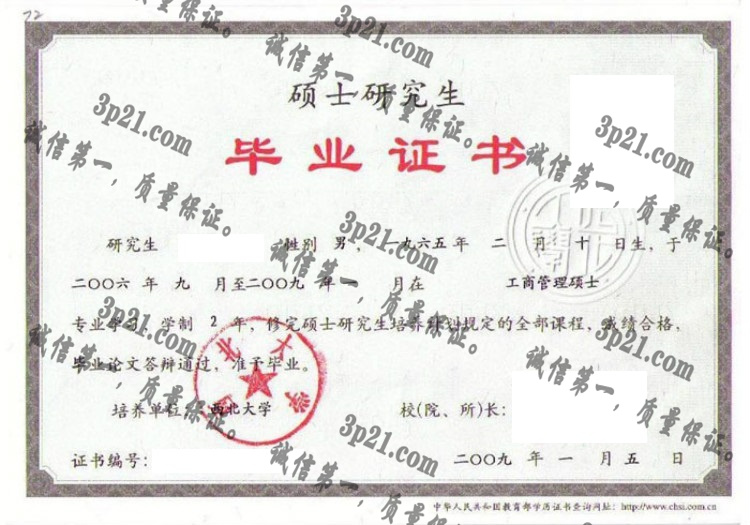 72
硕士研究生
毕业证书
研究生 性别 男，一九六五年 二 月 十 日生，于
二〇〇六 年 九 月至二〇〇九 年 一 月在 工商管理硕士
专业学习，学制 2 年，修完硕士研究生培养计划规定的全部课程，成绩合格，
毕业论文答辩通过，准予毕业。
培养单位：西北大学 校(院、所)长：
证书编号： 二〇〇九 年 一 月 五 日
中华人民共和国教育部学历证书查询网址：http://www.chsi.com.cn
西北大学
3p21.com
诚信第一，质量保证。
3p21.com
诚信第一，质量保证。
3p21.com
诚信第一，质量保证。
3p21.com
诚信第一，质量保证。
3p21.com
诚信第一，质量保证。
3p21.com
诚信第一，质量保证。
3p21.com
诚信第一，质量保证。